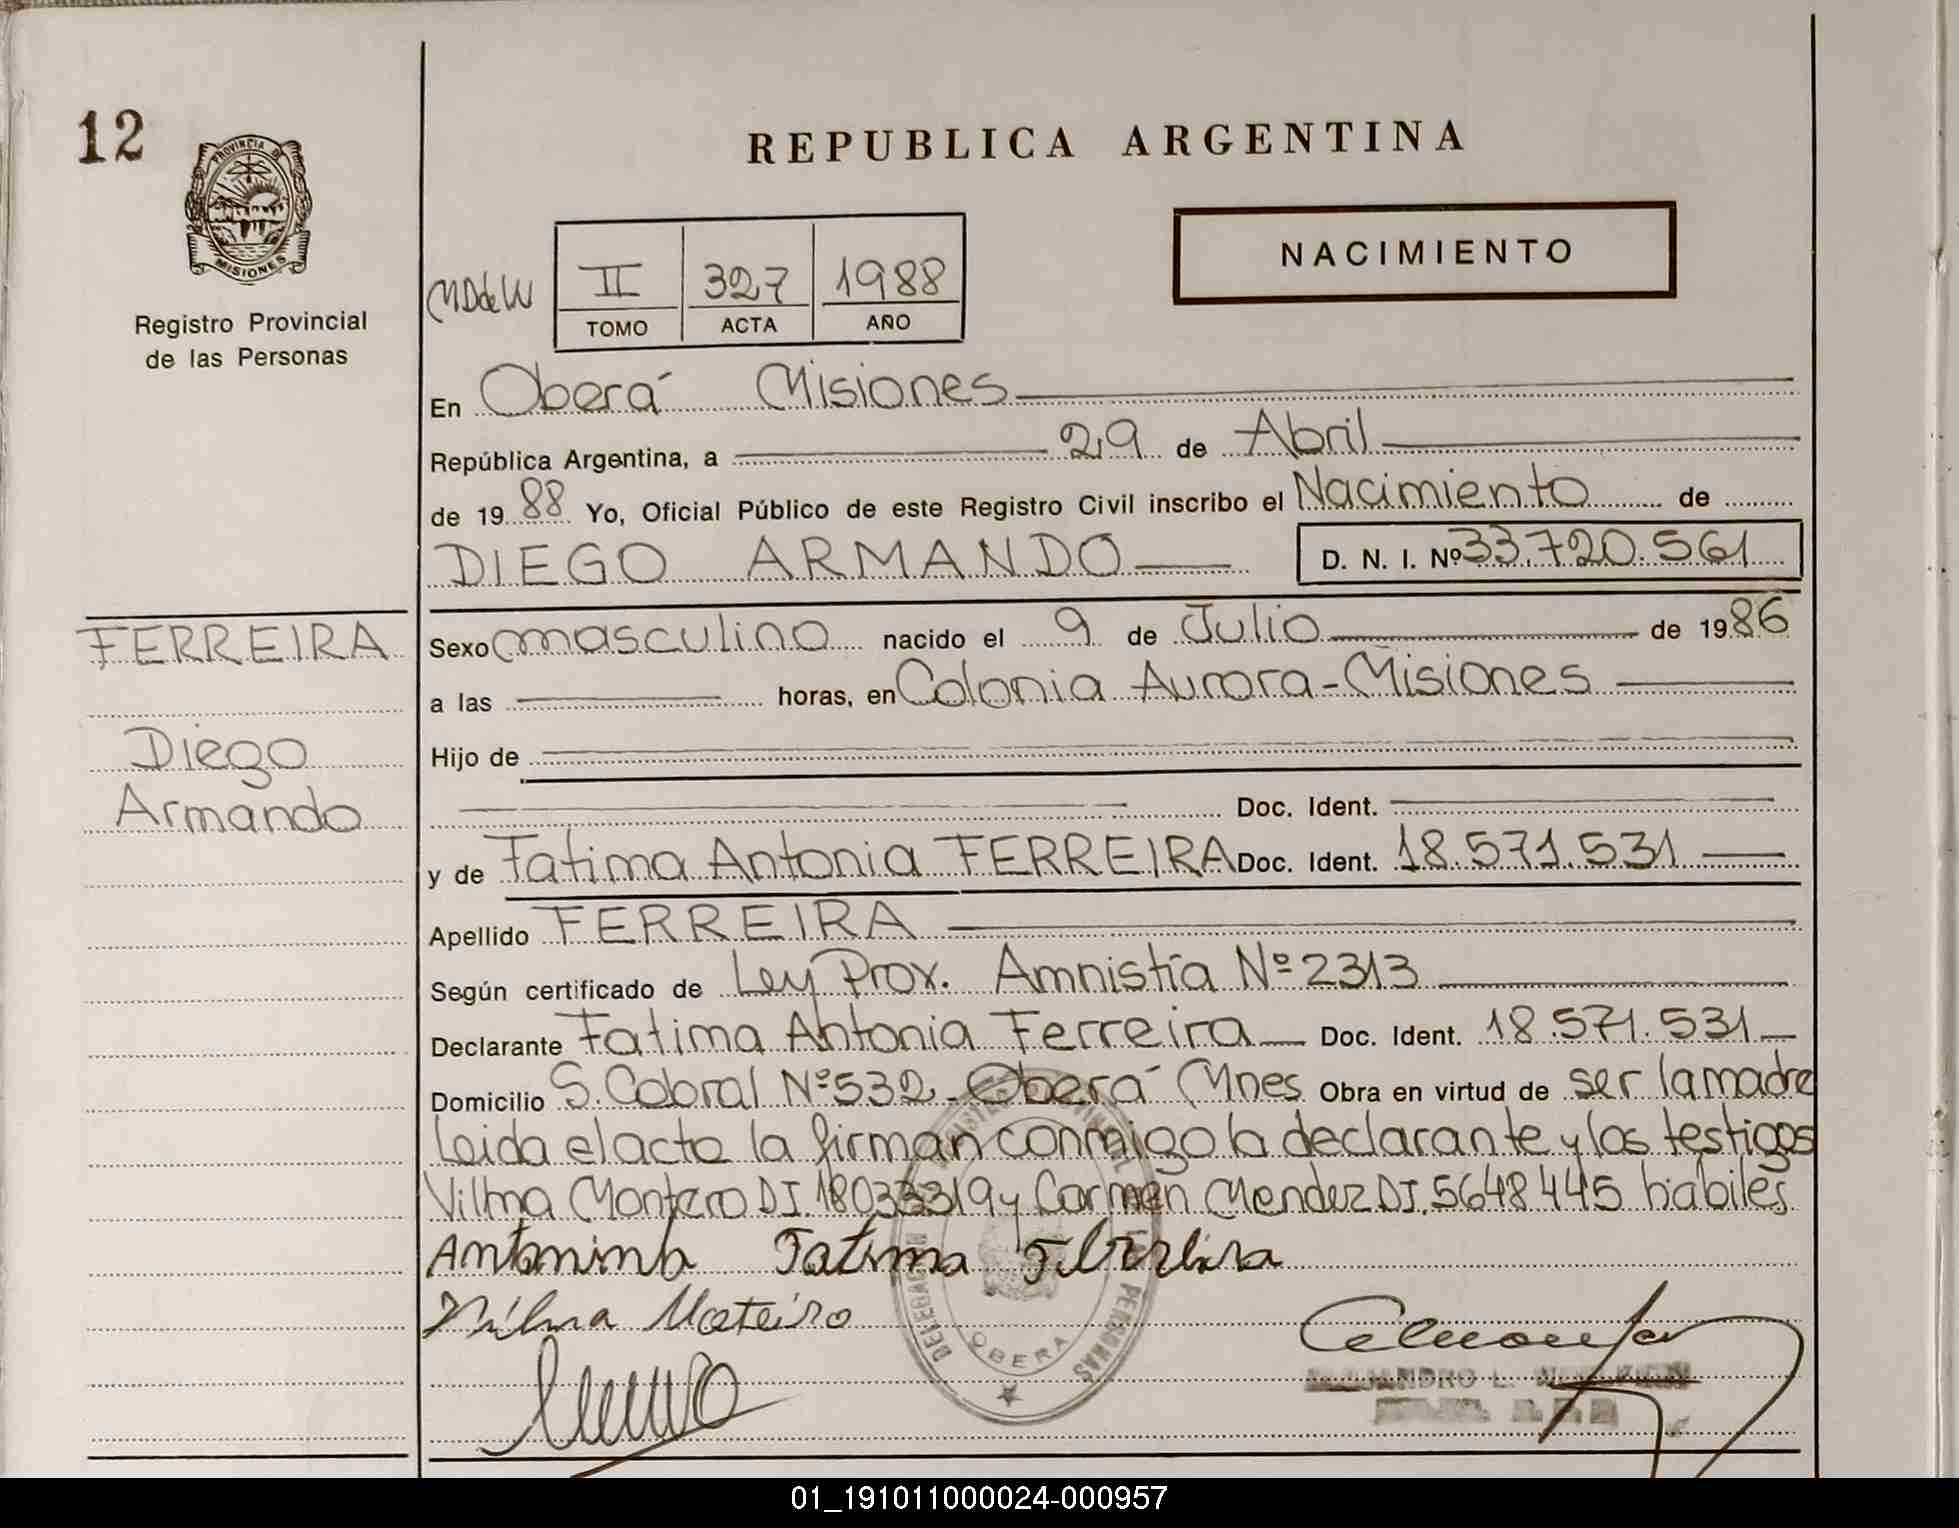 12
PROVINCIA DE
MISIONES
Registro Provincial
de las Personas
REPUBLICA ARGENTINA
NACIMIENTO
MDdeW II 327 1988
TOMO ACTA AÑO
En Oberá Misiones
República Argentina, a 29 de Abril
de 1988 Yo, Oficial Público de este Registro Civil inscribo el Nacimiento de
DIEGO ARMANDO D. N. I. Nº 33.720.561
FERREIRA
Diego
Armando
Sexo masculino nacido el 9 de Julio de 1986
a las horas, en Colonia Aurora-Misiones
Hijo de
Doc. Ident.
y de Fatima Antonia FERREIRA Doc. Ident. 18.571.531
Apellido FERREIRA
Según certificado de Ley Prox. Amnistía Nº 2313
Declarante Fatima Antonia Ferreira Doc. Ident. 18.571.531
Domicilio S. Cabral Nº 532 - Oberá Mnes Obra en virtud de ser la madre
Leida el acta la firman conmigo la declarante y los testigos
Vilma Montero DI. 18033319 y Carmen Mendez DI. 5648445 habiles
Antonina Fatima Ferreira
DELEGACION PERSONAS
OBERA
ALEJANDRO L.
01_191011000024-000957